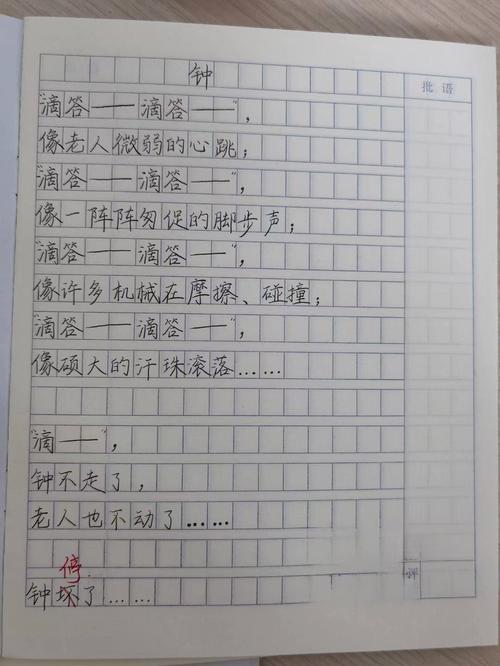 钟
批语
“滴答——滴答——”，
像老人微弱的心跳；
“滴答——滴答——”，
像一阵阵匆促的脚步声；
“滴答——滴答——”，
像许多机械在摩擦、碰撞；
“滴答——滴答——”，
像硕大的汗珠滚落……
“滴——”，
钟不走了，
老人也不动了……
停
评
钟坏了……